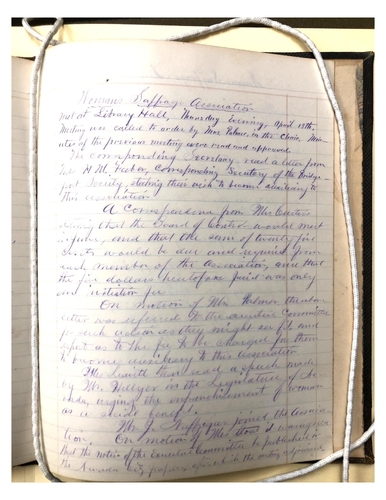 Womans Suffrage Association
met at Library Hall, Thursday evening, April 18th,
Meeting was called to order by Mrs Palmer in the Chair, Min
utes of the previous meeting were read and approved
The corresponding Secretary read a letter from
H. M. Corresponding Secretary of the Bridge
port Society, stating their wish to become auxiliary to
this association
A Correspondence from Mrs
that the Board of would meet
and that the sum of twenty five
would be due and required from
each member of the Association, and that
the five dollars heretofore paid was only
initiation fee.
On Motion of Mrs Palmer the
letter was referred to the executive Committee
action as they might see fit and
report as to the fee to be charged for them
to become auxiliary to this association
Mrs Leavitt then read a speech made
by Mr. Hillyer in the Legislature of Ne
vada, urging the enfranchisement of woman
as a
Mr. J. joined the associa
tion. On motion of Mrs
that the notes of the Executive Committee be published in
the Nevada City papers the meeting adjourned